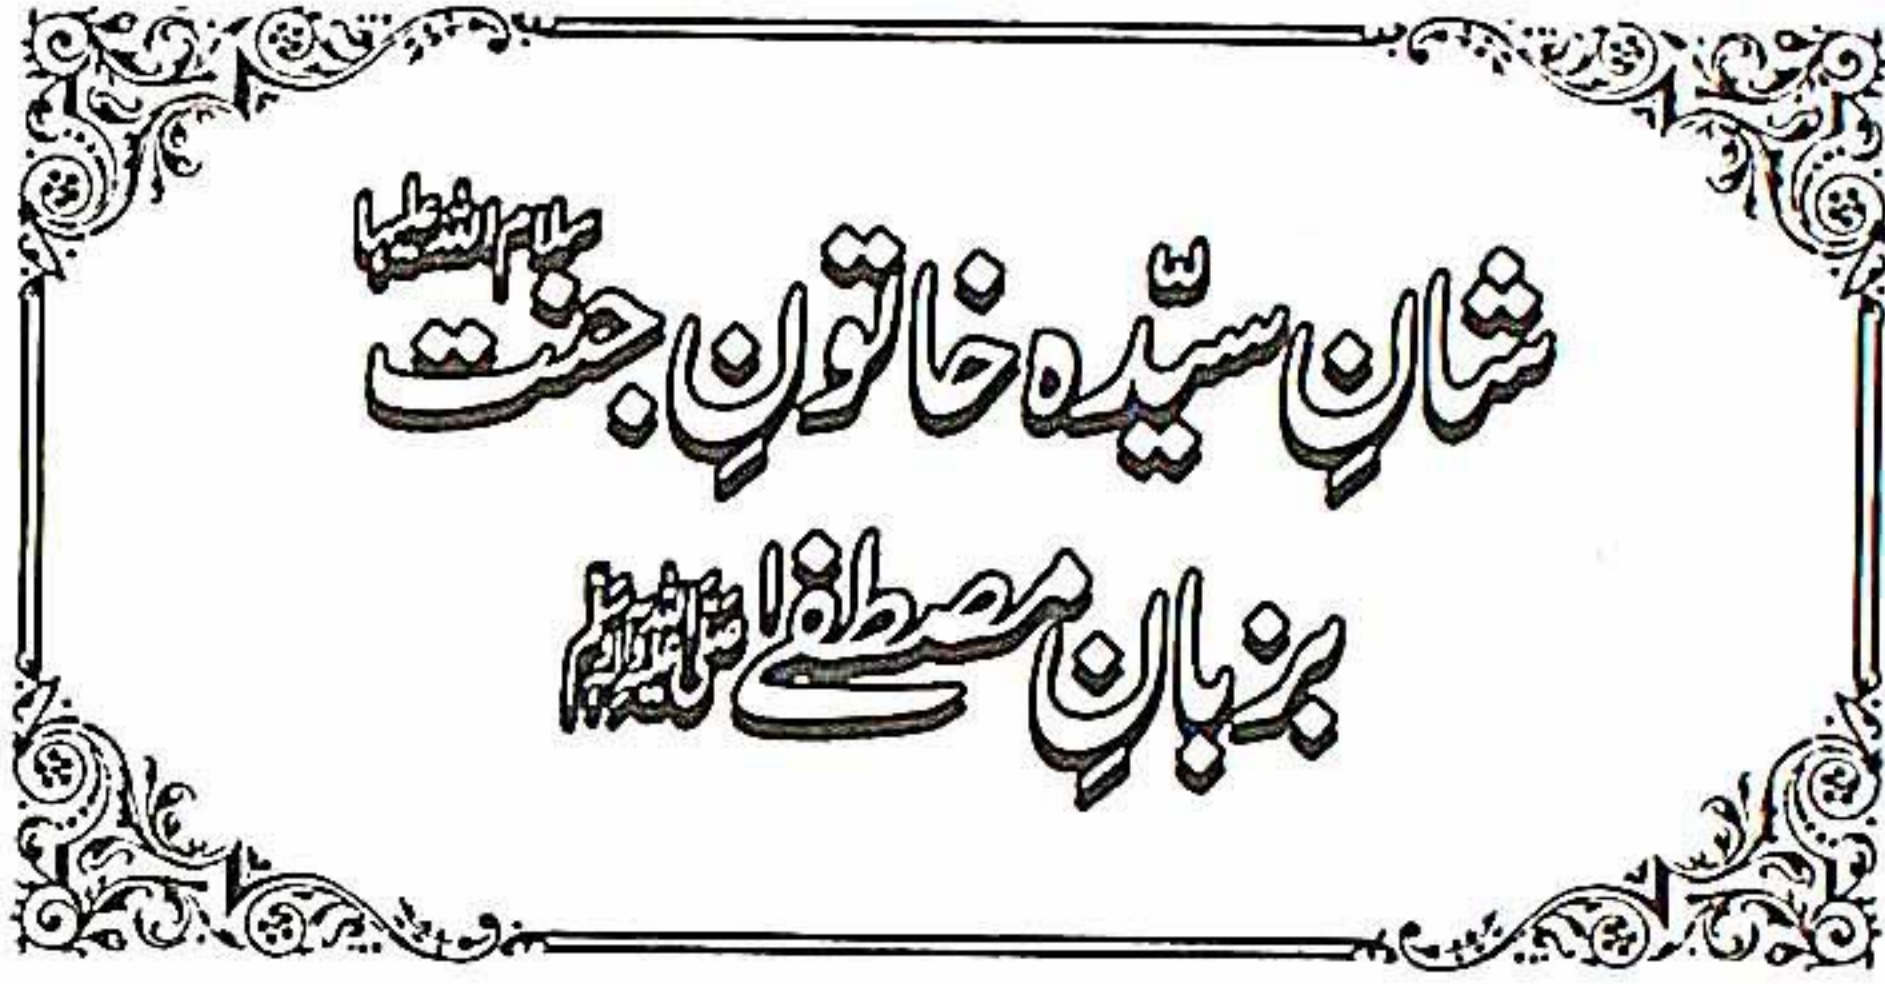 شانِ سیّدہ خاتونِ جنت سلام اللہ علیہا
بزبانِ مصطفےٰ صلی اللہ علیہ وآلہ وسلم